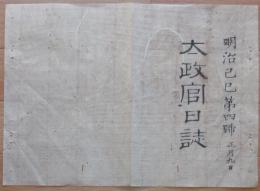 明治己巳第四號 正月九日
太政官日誌